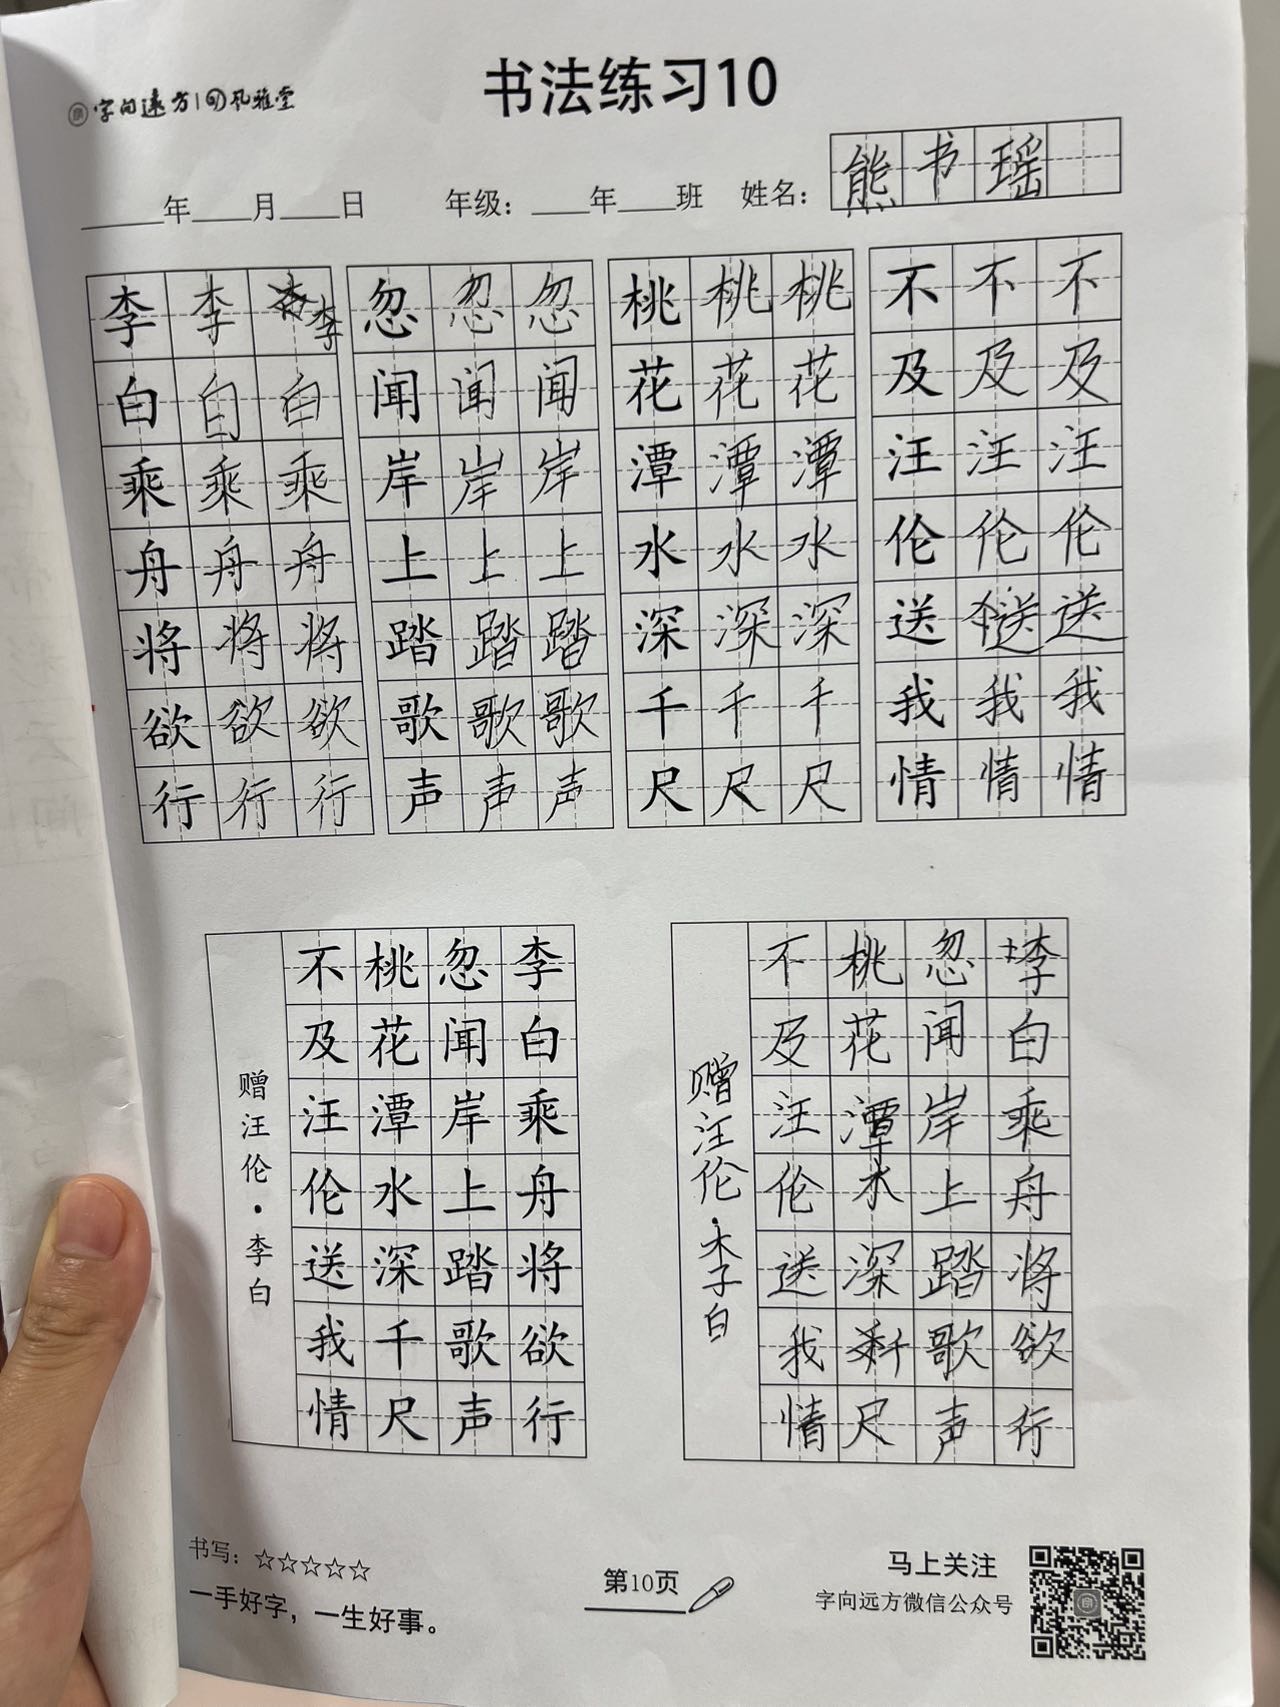 字向远方 凤雅堂
书法练习10
____年____月____日 年级：____年____班 姓名：熊书瑶
李李李 忽忽忽 桃桃桃 不不不
白白白 闻闻闻 花花花 及及及
乘乘乘 岸岸岸 潭潭潭 汪汪汪
舟舟舟 上上上 水水水 伦伦伦
将将将 踏踏踏 深深深 送送送
欲欲欲 歌歌歌 千千千 我我我
行行行 声声声 尺尺尺 情情情
李白乘舟将欲行
忽闻岸上踏歌声
桃花潭水深千尺
不及汪伦送我情
赠汪伦·李白
李白乘舟将欲行
忽闻岸上踏歌声
桃花潭水深千尺
不及汪伦送我情
赠汪伦·李白
书写：☆☆☆☆☆
一手好字，一生好事。
第10页
马上关注
字向远方微信公众号